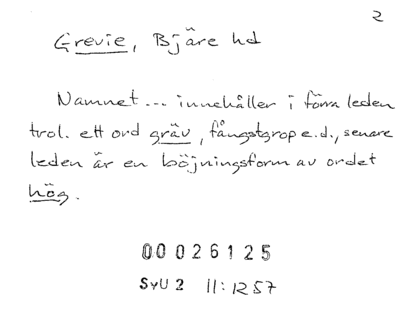 2
Grevie, Bjäre hd
Namnet... innehåller i förra leden
trol. ett ord gräv, fångstgrop e.d., senare
leden är en böjningsform av ordet
hög.
00026125
SyU 2 11:1257